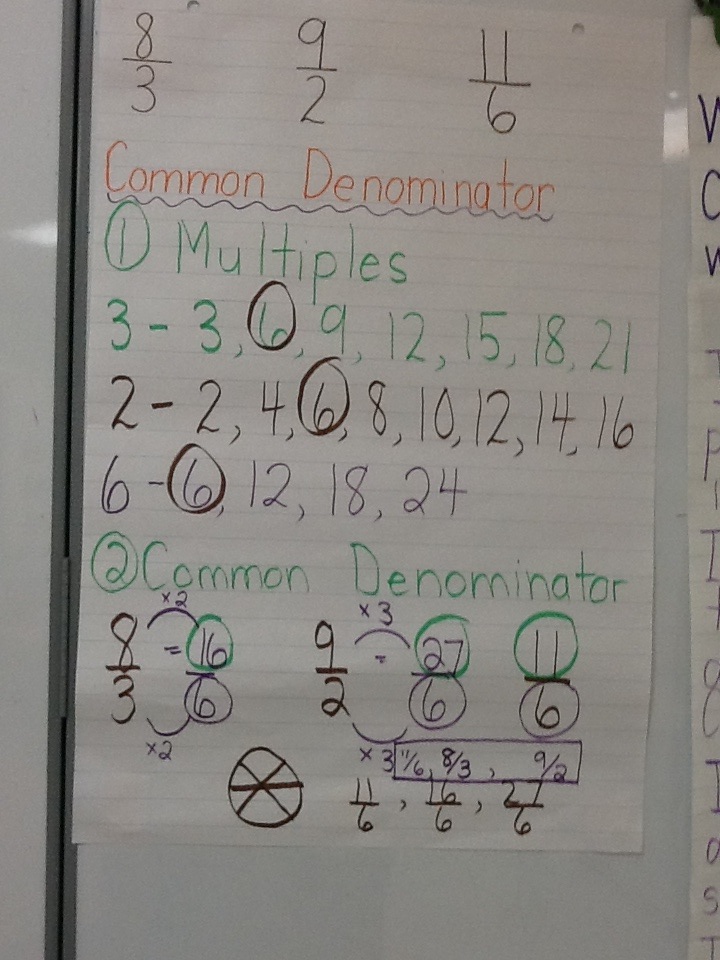 8/3 9/2 11/6
Common Denominator
① Multiples
3 - 3, 6, 9, 12, 15, 18, 21
2 - 2, 4, 6, 8, 10, 12, 14, 16
6 - 6, 12, 18, 24
② Common Denominator
×2 ×3
8/3 = 16/6 9/2 = 27/6 11/6
×2 ×3 11/6, 8/3, 9/2
11/6, 16/6, 27/6